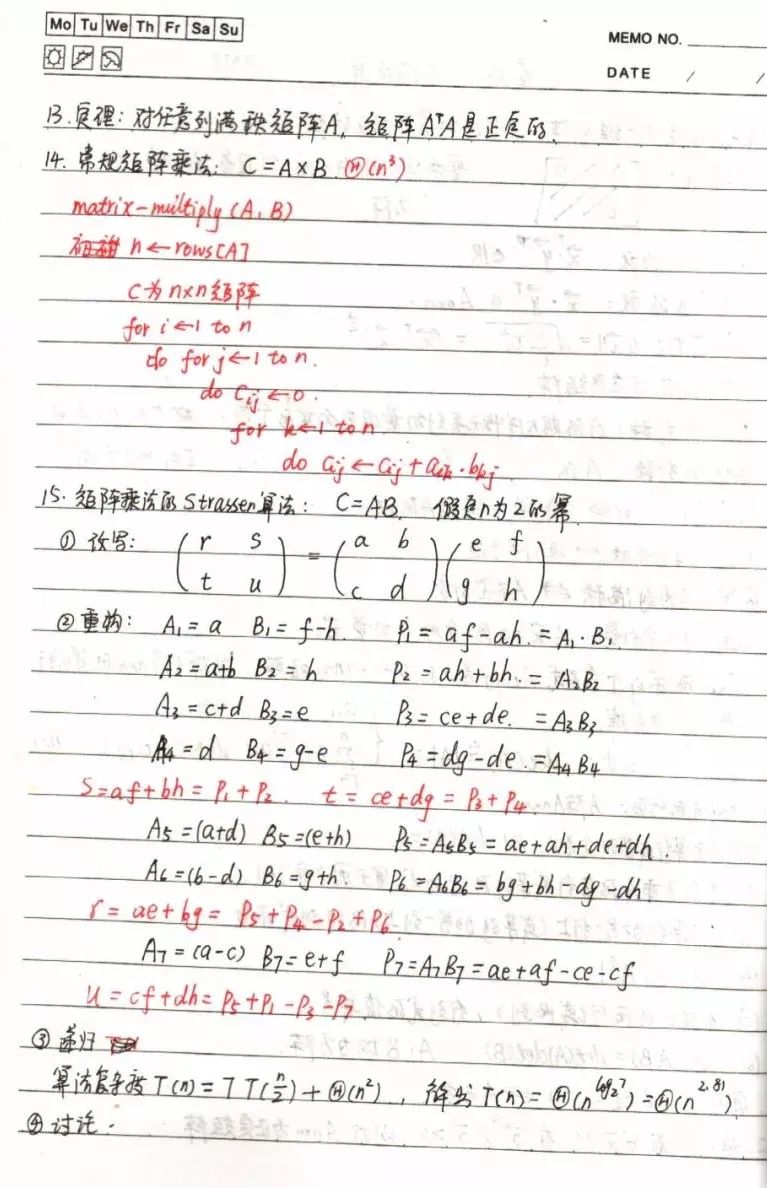 Mo Tu We Th Fr Sa Su
MEMO NO.
DATE / /
13. 定理: 对任意列满秩矩阵A, 矩阵AᵀA是正定的.
14. 常规矩阵乘法: C=A×B. Θ(n³)
matrix-multiply(A, B)
n←rows[A]
C为n×n矩阵
for i←1 to n
do for j←1 to n.
do Cij←0.
for k←1 to n
do Cij←Cij+aik·bkj.
15. 矩阵乘法的Strassen算法: C=AB, 假定n为2的幂.
① 改写: (r s; t u) = (a b; c d)(e f; g h)
② 重构: A₁=a B₁=f-h. P₁=af-ah.=A₁·B₁
A₂=a+b B₂=h P₂=ah+bh.=A₂B₂
A₃=c+d B₃=e P₃=ce+de. =A₃B₃
A₄=d B₄=g-e P₄=dg-de.=A₄B₄
S=af+bh=P₁+P₂. t=ce+dg=P₃+P₄.
A₅=(a+d) B₅=(e+h) P₅=A₅B₅=ae+ah+de+dh.
A₆=(b-d) B₆=g+h. P₆=A₆B₆=bg+bh-dg-dh
r=ae+bg=P₅+P₄-P₂+P₆.
A₇=(a-c) B₇=e+f P₇=A₇B₇=ae+af-ce-cf
u=cf+dh=P₅+P₁-P₃-P₇.
③ 递归
算法复杂度T(n)=7T(n/2)+Θ(n²), 解出T(n)=Θ(n^log₂7)=Θ(n^2.81)
④ 讨论.